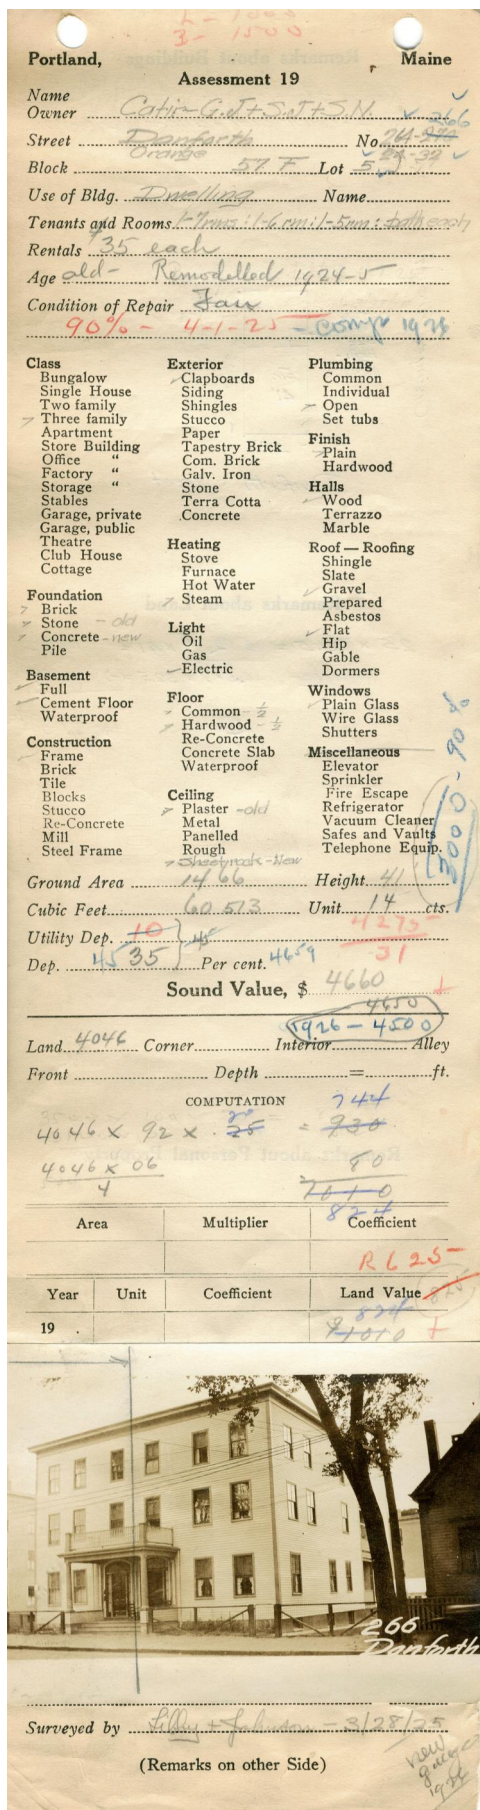 L - 1000
B - 1500
Portland, Maine
Assessment 19
Name
Owner Catir - G.J + S.J + S.N.
266
Street Danforth No. 264-270
Orange 24-32
Block 57 F Lot 5
Use of Bldg. Dwelling Name
Tenants and Rooms 1-7rms: 1-6 rm: 1-5rm: bath each
Rentals 35 each
Age old - Remodelled 1924-5
Condition of Repair Fair
90% - 4-1-25 - Comp 1926
Class
Bungalow
Single House
Two family
Three family
Apartment
Store Building
Office "
Factory "
Storage "
Stables
Garage, private
Garage, public
Theatre
Club House
Cottage
Foundation
Brick
Stone - old
Concrete - new
Pile
Basement
Full
Cement Floor
Waterproof
Construction
Frame
Brick
Tile
Blocks
Stucco
Re-Concrete
Mill
Steel Frame
Exterior
Clapboards
Siding
Shingles
Stucco
Paper
Tapestry Brick
Com. Brick
Galv. Iron
Stone
Terra Cotta
Concrete
Heating
Stove
Furnace
Hot Water
Steam
Light
Oil
Gas
Electric
Floor
Common - 1/2
Hardwood - 1/2
Re-Concrete
Concrete Slab
Waterproof
Ceiling
Plaster - old
Metal
Panelled
Rough
Sheetrock - New
Plumbing
Common
Individual
Open
Set tubs
Finish
Plain
Hardwood
Halls
Wood
Terrazzo
Marble
Roof — Roofing
Shingle
Slate
Gravel
Prepared
Asbestos
Flat
Hip
Gable
Dormers
Windows
Plain Glass
Wire Glass
Shutters
Miscellaneous
Elevator
Sprinkler
Fire Escape
Refrigerator
Vacuum Cleaner
Safes and Vaults
Telephone Equip.
3000 - 90%
Ground Area 1466 Height 41
Cubic Feet 60 513 Unit 14 cts.
Utility Dep. 10 45 4275
31
Dep. 45 35 Per cent. 4659
Sound Value, $ 4660
4650
1926 - 4500
Land 4046 Corner Interior Alley
Front Depth = ft.
COMPUTATION
744
20
4046 x 92 x .25 = 930
4046 x 06 80
4 1010
824
Area Multiplier Coefficient
R 625
Year Unit Coefficient Land Value 825
824
19 1010
266
Danforth
Surveyed by Libby + Johnson - 3/28/25
(Remarks on other Side)
new
1926